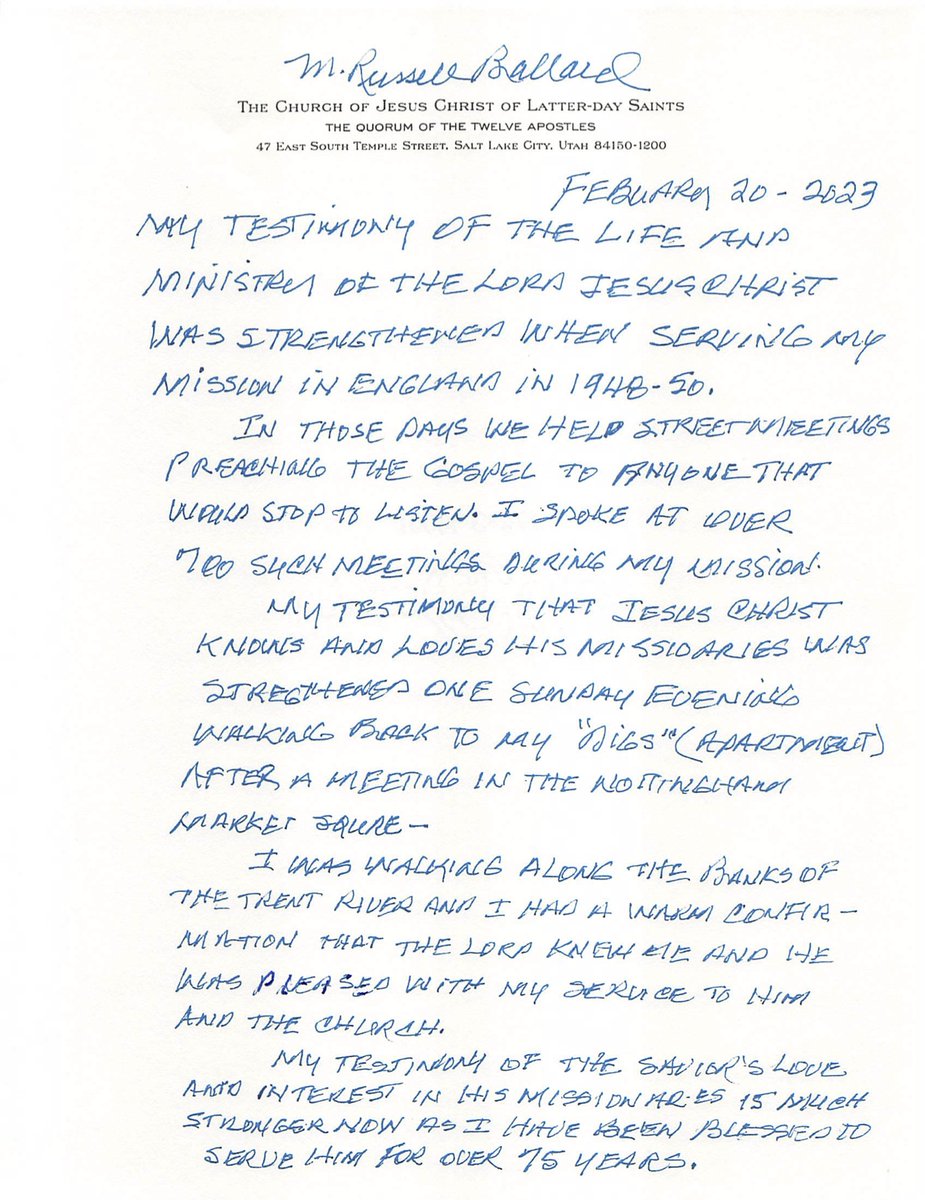 M. Russell Ballard
THE CHURCH OF JESUS CHRIST OF LATTER-DAY SAINTS
THE QUORUM OF THE TWELVE APOSTLES
47 EAST SOUTH TEMPLE STREET, SALT LAKE CITY, UTAH 84150-1200
FEBUARY 20-2023
MY TESTIMONY OF THE LIFE AND
MINISTRY OF THE LORD JESUS CHRIST
WAS STRENGTHENED WHEN SERVING MY
MISSION IN ENGLAND IN 1948-50.
IN THOSE DAYS WE HELD STREET MEETINGS
PREACHING THE GOSPEL TO ANYONE THAT
WOULD STOP TO LISTEN. I SPOKE AT OVER
700 SUCH MEETINGS DURING MY MISSION.
MY TESTIMONY THAT JESUS CHRIST
KNOWS AND LOVES HIS MISSIOARIES WAS
STREGTHENED ONE SUNDAY EVENING
WALKING BACK TO MY "DIGS" (APARTMENT)
AFTER A MEETING IN THE NOTTINGHAM
MARKET SQURE—
I WAS WALKING ALONG THE BANKS OF
THE TRENT RIVER AND I HAD A WARM CONFIR-
MATION THAT THE LORD KNEW ME AND HE
WAS PLEASED WITH MY SERVICE TO HIM
AND THE CHURCH.
MY TESTIMONY OF THE SAVIOR'S LOVE
AND INTEREST IN HIS MISSIONARIES IS MUCH
STRONGER NOW AS I HAVE BEEN BLESSED TO
SERVE HIM FOR OVER 75 YEARS.